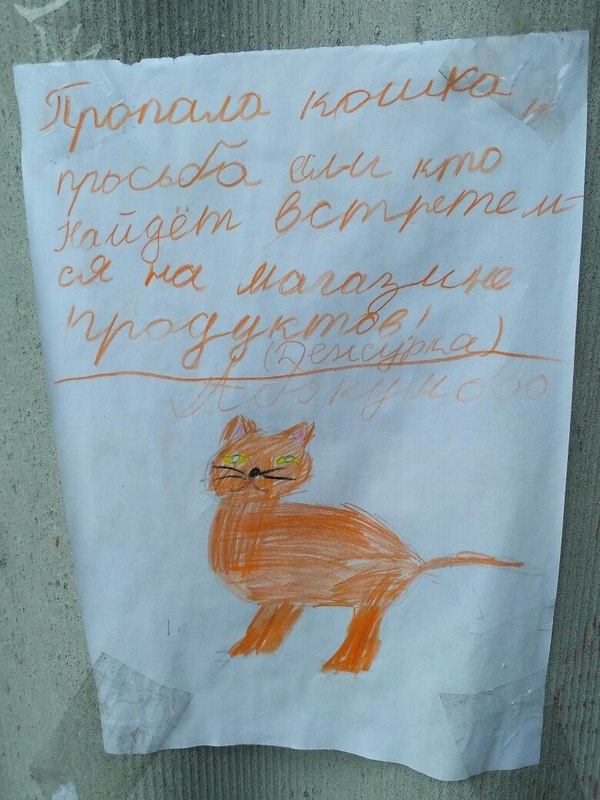 Пропала кошка,
просьба если кто
найдёт встретем-
ся на магазине
продуктов!
(Дежурка)